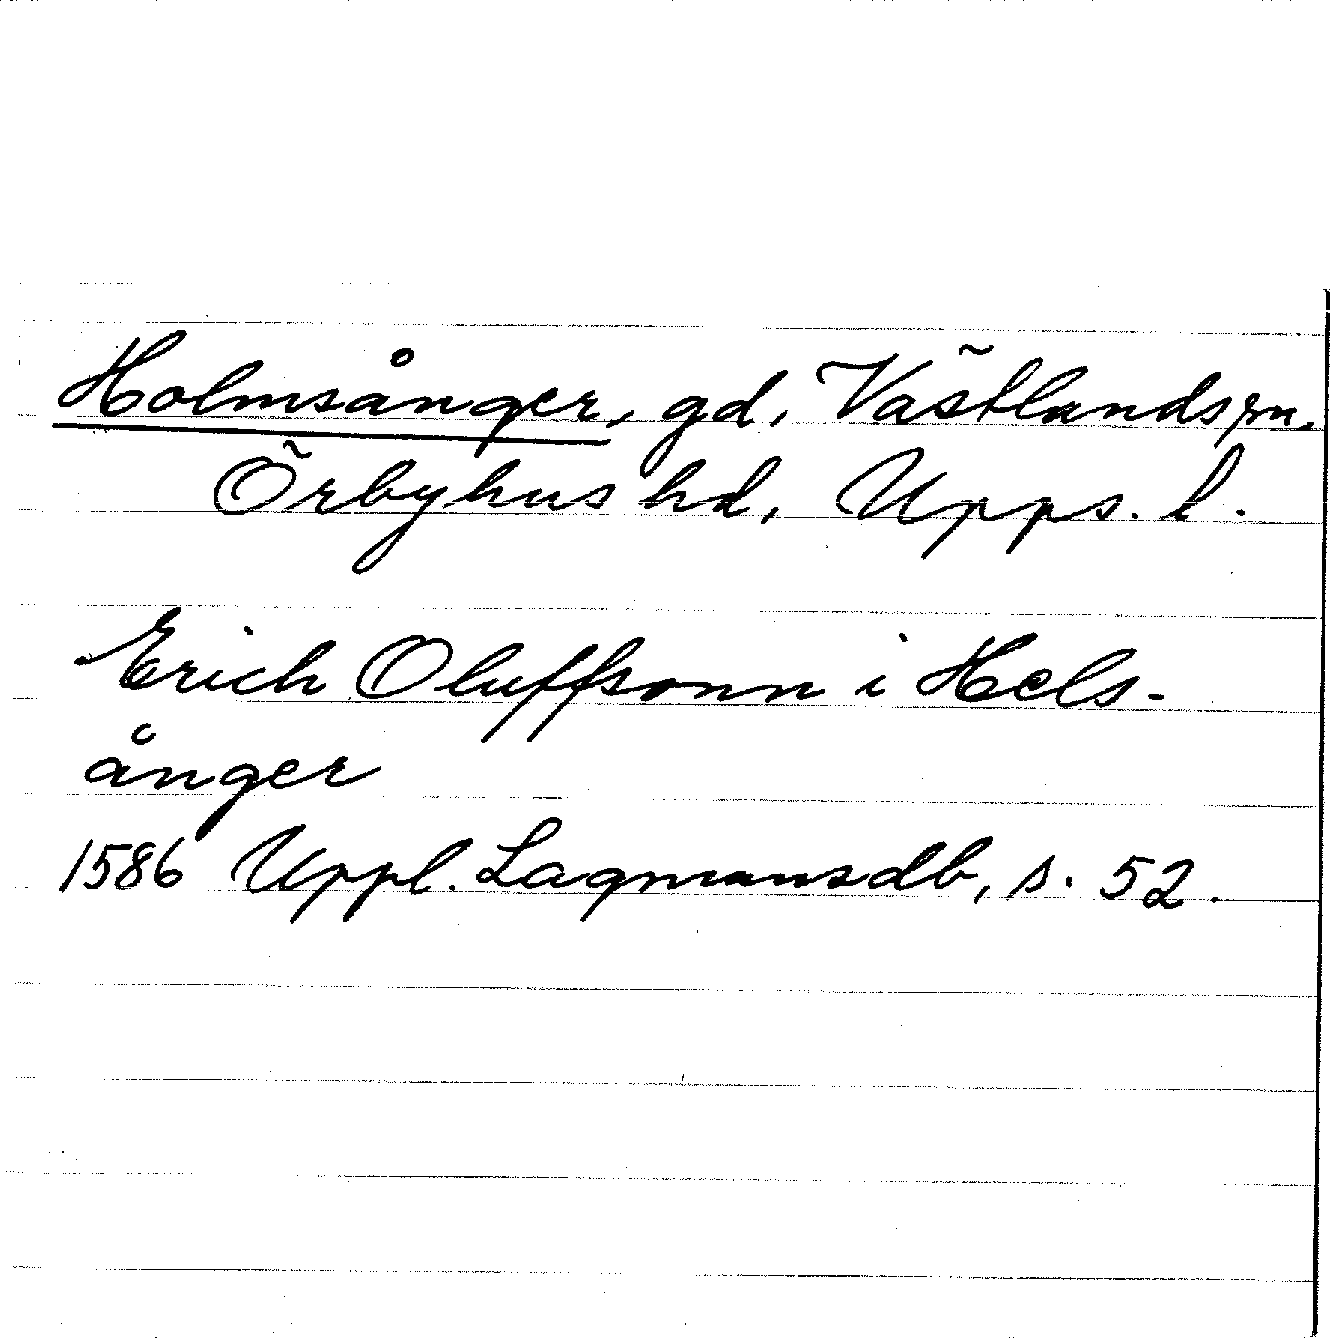 Holmsånger, gd, Västlands sn.
Örbyhus hd, Upps. l.
Erich Oluffsonn i Hels-
ånger
1586 Uppl. Lagmansdb, s. 52.